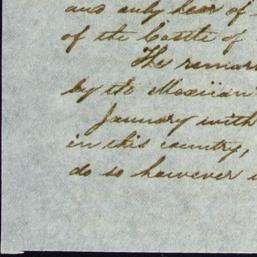 and only hear of
of the Castle of
The remar
by the Mexican
January with
in this country,
do so however